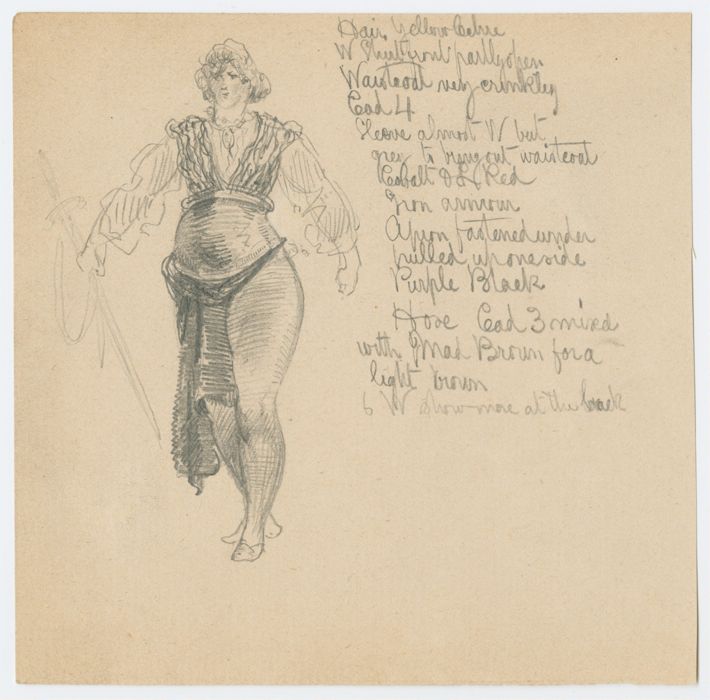 Hair Yellow Ochre
W Shirt front partly open
Waistcoat very crinkley
Cad 4
Sleeve almost W but
grey to bring out waistcoat
Cobalt & Red
Iron armour
Apron fastened under
pulled up one side
Purple Black
Hose Cad 3 mixed
with Mad Brown for a
light brown
W show more at the back